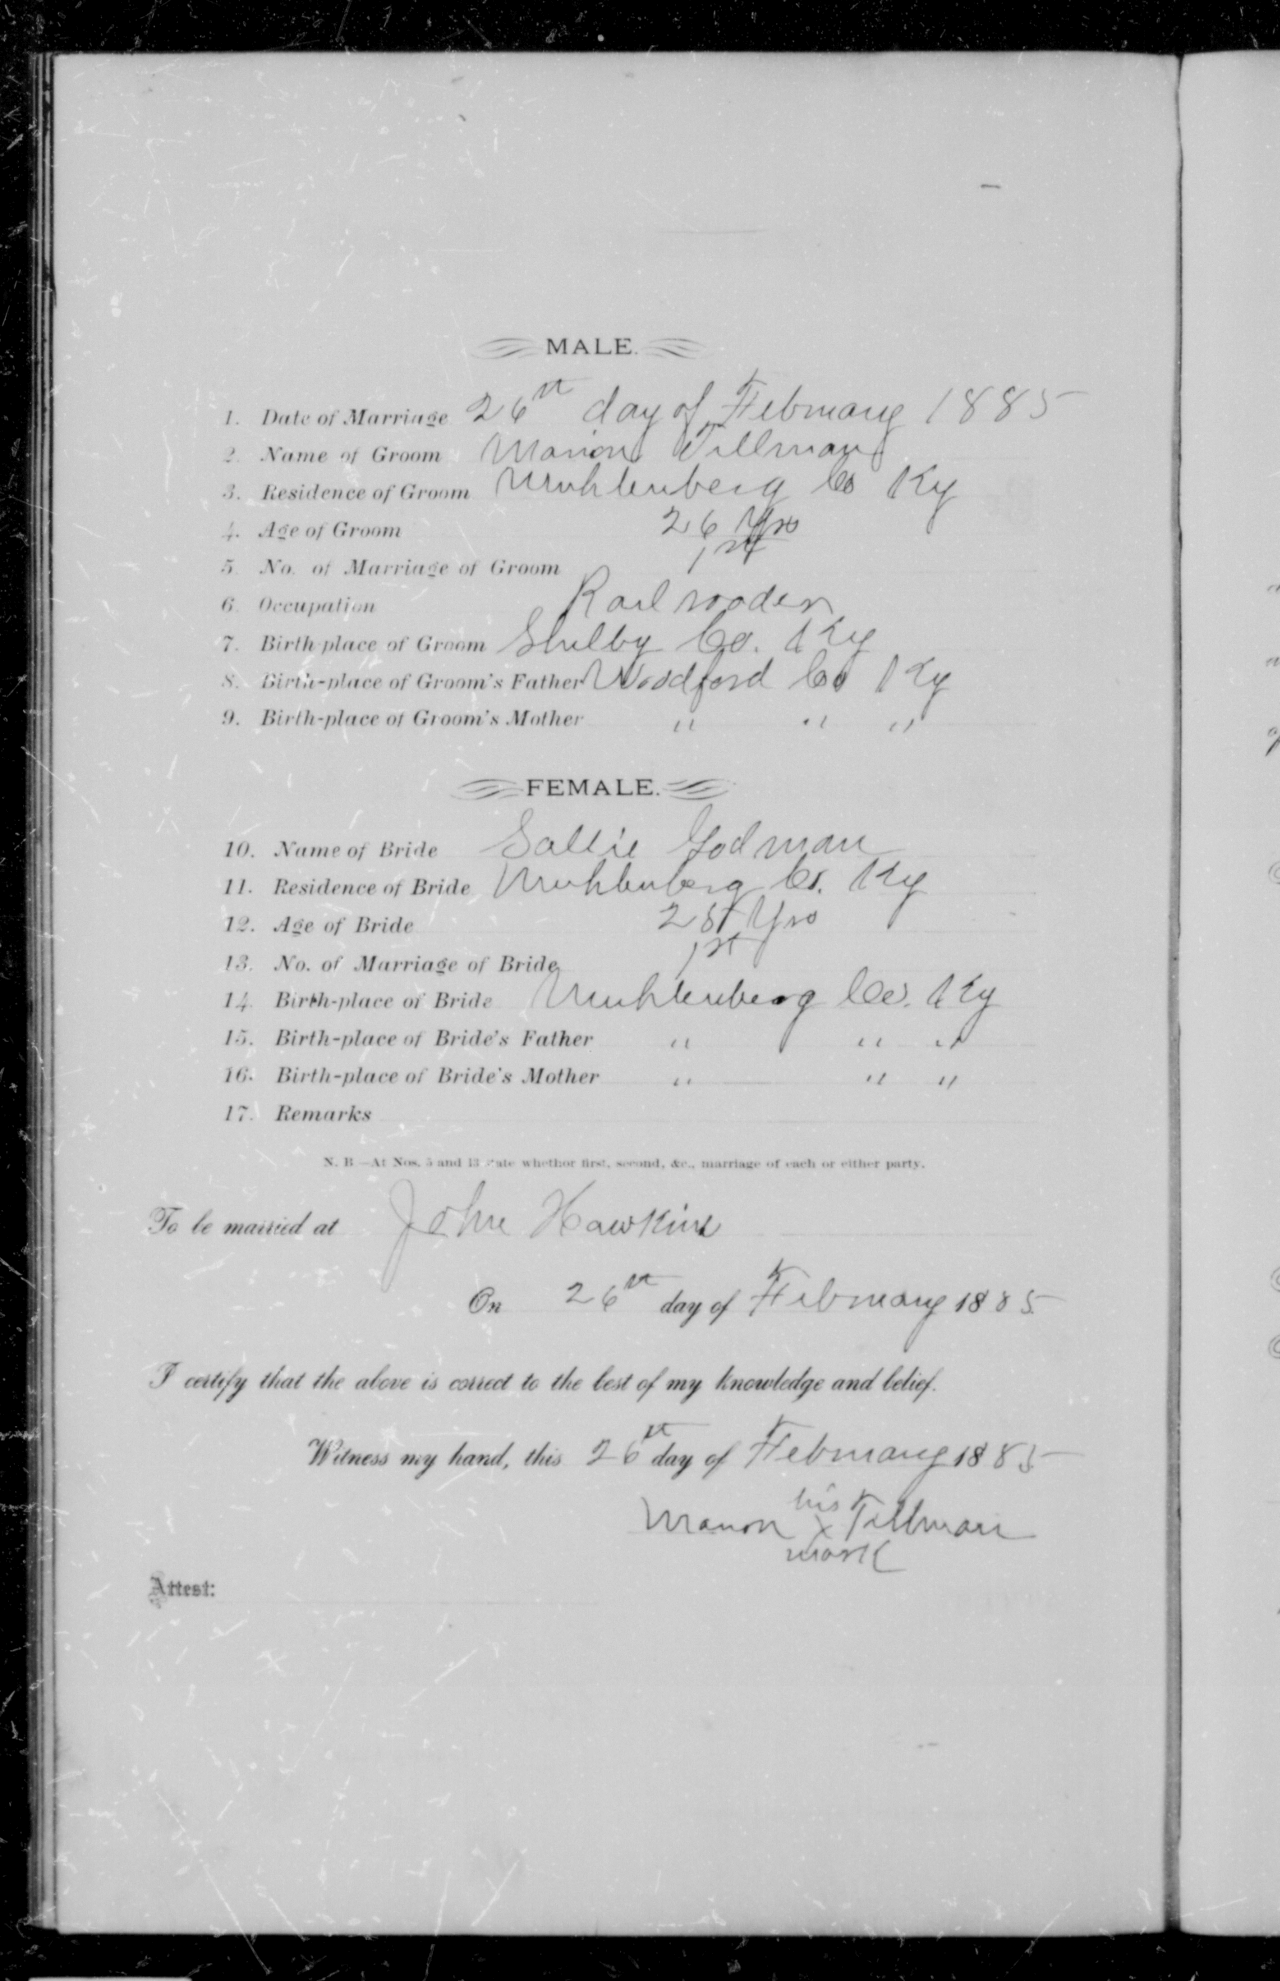 MALE.
1. Date of Marriage 26st day of February 1885
2. Name of Groom Marion Tillman
3. Residence of Groom Muhlenberg Co Ky
4. Age of Groom 26 Yrs
5. No. of Marriage of Groom 1st
6. Occupation Railroader
7. Birth-place of Groom Shelby Co. Ky
8. Birth-place of Groom's Father Woodford Co Ky
9. Birth-place of Groom's Mother " " "
FEMALE.
10. Name of Bride Sallie Godman
11. Residence of Bride Muhlenberg Co. Ky
12. Age of Bride Yrs
13. No. of Marriage of Bride 1st
14. Birth-place of Bride Muhlenberg Co. Ky
15. Birth-place of Bride's Father " " "
16. Birth-place of Bride's Mother " " "
17. Remarks
N. B.—At Nos. 5 and 13 state whether first, second, &c., marriage of each or either party.
To be married at John Hawkins
On 26st day of February 1885
I certify that the above is correct to the best of my knowledge and belief.
Witness my hand, this 26st day of February 1885
his
Marion X Tillman
mark
Attest: